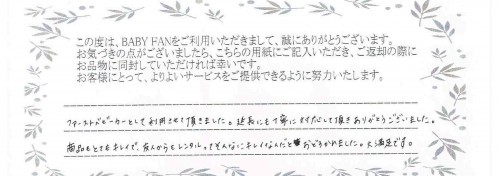 この度は、BABY FANをご利用いただきまして、誠にありがとうございます。
お気づきの点がございましたら、こちらの用紙にご記入いただき、ご返却の際に
お品物に同封していただければ幸いです。
お客様にとって、よりよいサービスをご提供できるように努力いたします。
ファーストベビーカーとして利用させて頂きました。延長にも丁寧に対応して頂きありがとうございました。
商品もとてもキレイで、友人からもレンタルってそんなにキレイなんだとおどろかれました。大満足です。